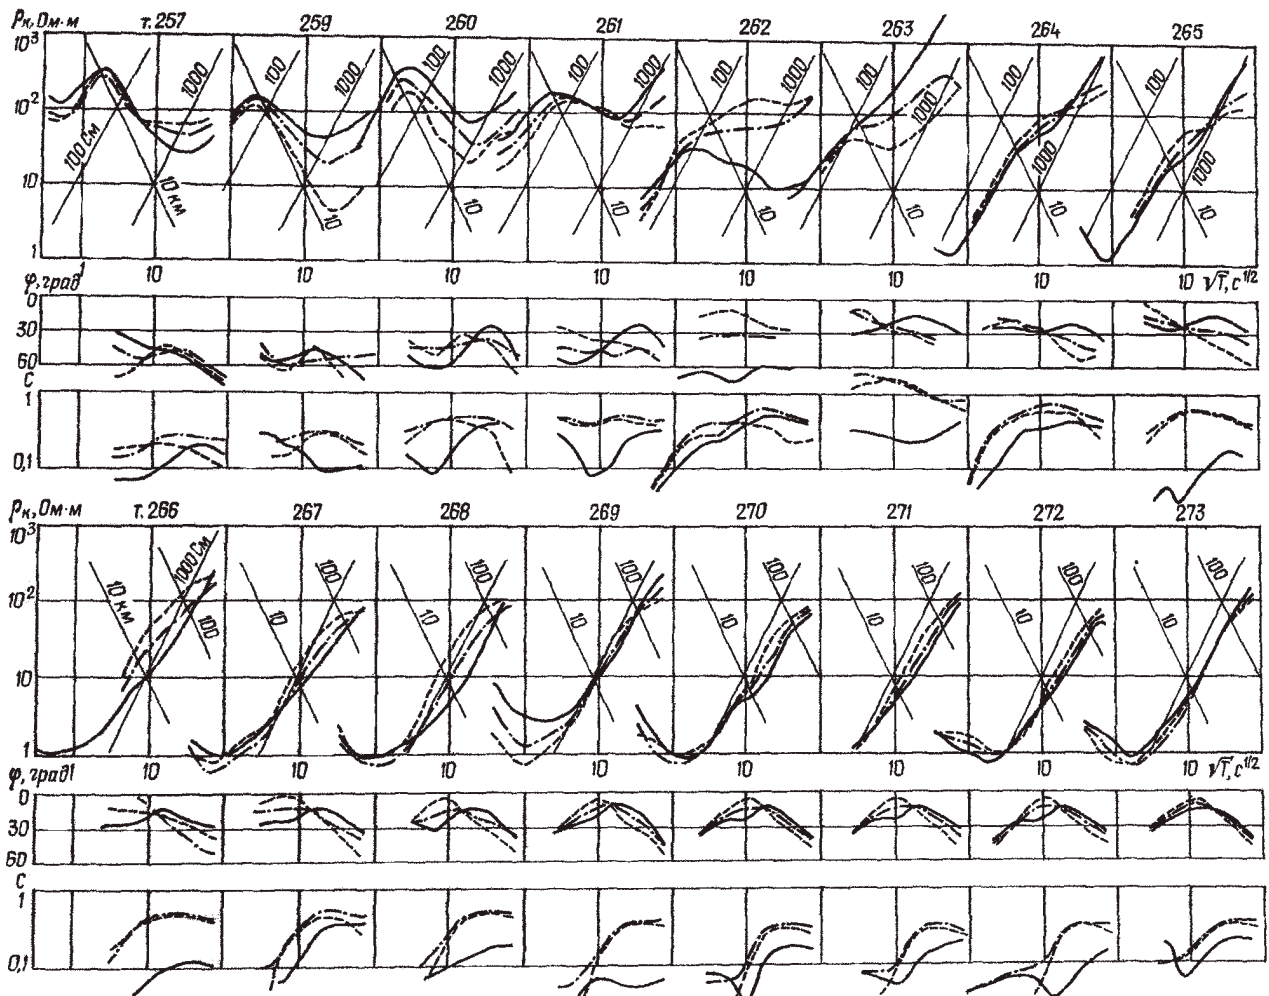 ρк, Ом·м т. 257 259 260 261 262 263 264 265
10³
10²
10
1
100 См 1000 10 км
100 1000 10
100 1000 10
100 1000 10
100 1000 10
100 1000 10
100 1000 10
100 1000 10
1 10 10 10 10 10 10 10 10 √T, с^1/2
φ, град
0
30
60
С
1
0,1
ρк, Ом·м т. 266 267 268 269 270 271 272 273
10³
10²
10
1
10 км 1000 См 100
10 100
10 100
10 100
10 100
10 100
10 100
10 100
1 10 10 10 10 10 10 10 10 √T, с^1/2
φ, град
0
30
60
С
1
0,1